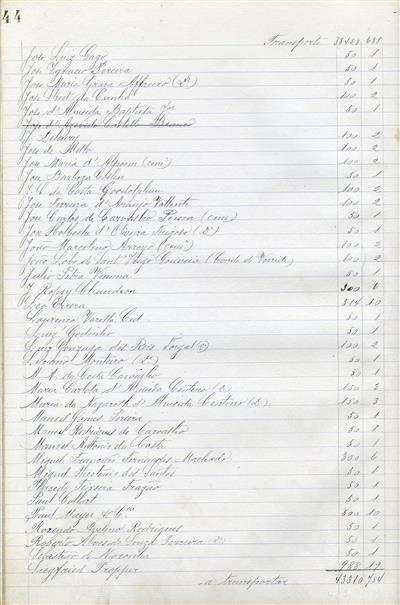 44
Transporte 38408 688
José Luiz Gago 50 1
José Ignacio Pereira 50 1
José Maria Graça Affreixo (Dr) 50 1
José da Cunha 100 2
José d'Almeida Baptista 50 1
José d'Azevedo Castello Branco
J. 100 2
José de Mello 100 2
José Maria d'Alpoim (cons) 100 2
José Barboza 50 1
J. G. da Costa Goodolphim 100 2
José Ferreira d'Araujo Vallente 100 2
José Carlos de Carvalho Pessoa (cons) 50 1
José Holbeche d'Oliveira Trigoso (Dr) 50 1
João Marcelino Arroyo (cons) 100 2
João Lobo de Sant'Iago Gouveia (Conde de Verride) 100 2
Julio Petra Vianna 50 1
J. 300 6
Leo 514 10
Lourenço Varella Cid 50 1
Luiz Godinho 50 1
Luiz Gonzaga dos Reis Torgal 100 2
Luciano Monteiro (Dr) 50 1
M. A. da Costa Carvalho 50 1
Maria Carlota d'Almeida Centeno (D.) 150 3
Maria de Nazareth d'Almeida Centeno (D.) 150 3
Manoel Gomes Pereira 50 1
Manoel Rodrigues de Carvalho 50 1
Manoel Antonio da Costa 50 1
Miguel Francisco Fernandes Machado 300 6
Miguel Antonio dos Santos 50 1
Teixeira Frazão 50 1
Paul 50 1
Paul Mayer & Cia 500 10
Rozendo Avelino Rodrigues 50 1
Rogerio Alves de Souza Ferreira (Dr) 50 1
Sebastião de Noronha 50 1
Siegfried Propper 988 19
a transportar 43310 784